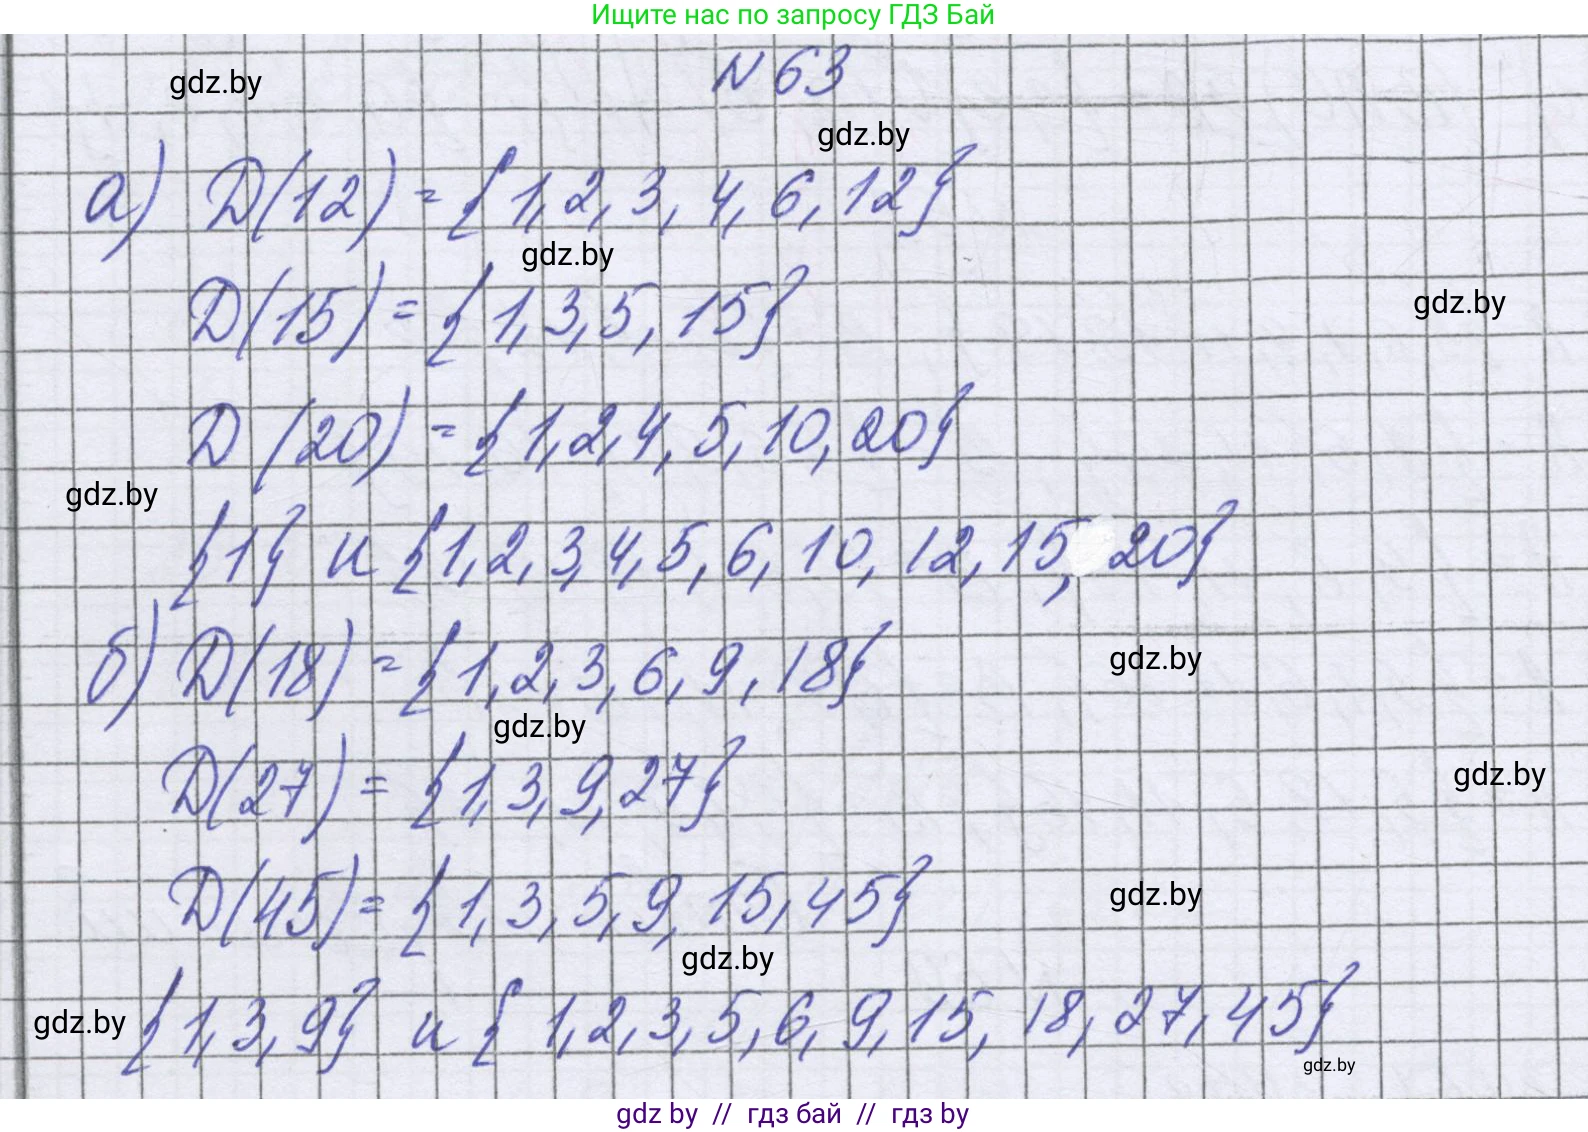 Ищите нас по запросу ГДЗ Бай
N 63
gdz.by
gdz.by
а) D(12) = {1, 2, 3, 4, 6, 12}
gdz.by
D(15) = {1, 3, 5, 15}
gdz.by
D(20) = {1, 2, 4, 5, 10, 20}
gdz.by
{1} и {1, 2, 3, 4, 5, 6, 10, 12, 15, 20}
б) D(18) = {1, 2, 3, 6, 9, 18}
gdz.by
gdz.by
D(27) = {1, 3, 9, 27}
gdz.by
D(45) = {1, 3, 5, 9, 15, 45}
gdz.by
gdz.by
gdz.by
{1, 3, 9} и {1, 2, 3, 5, 6, 9, 15, 18, 27, 45}
gdz.by
gdz by // гдз бай // гдз by